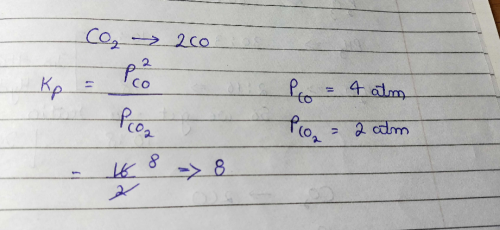 CO₂ → 2CO
Kp = P²CO / PCO₂
PCO = 4 atm
PCO₂ = 2 atm
= 16/2 8 => 8